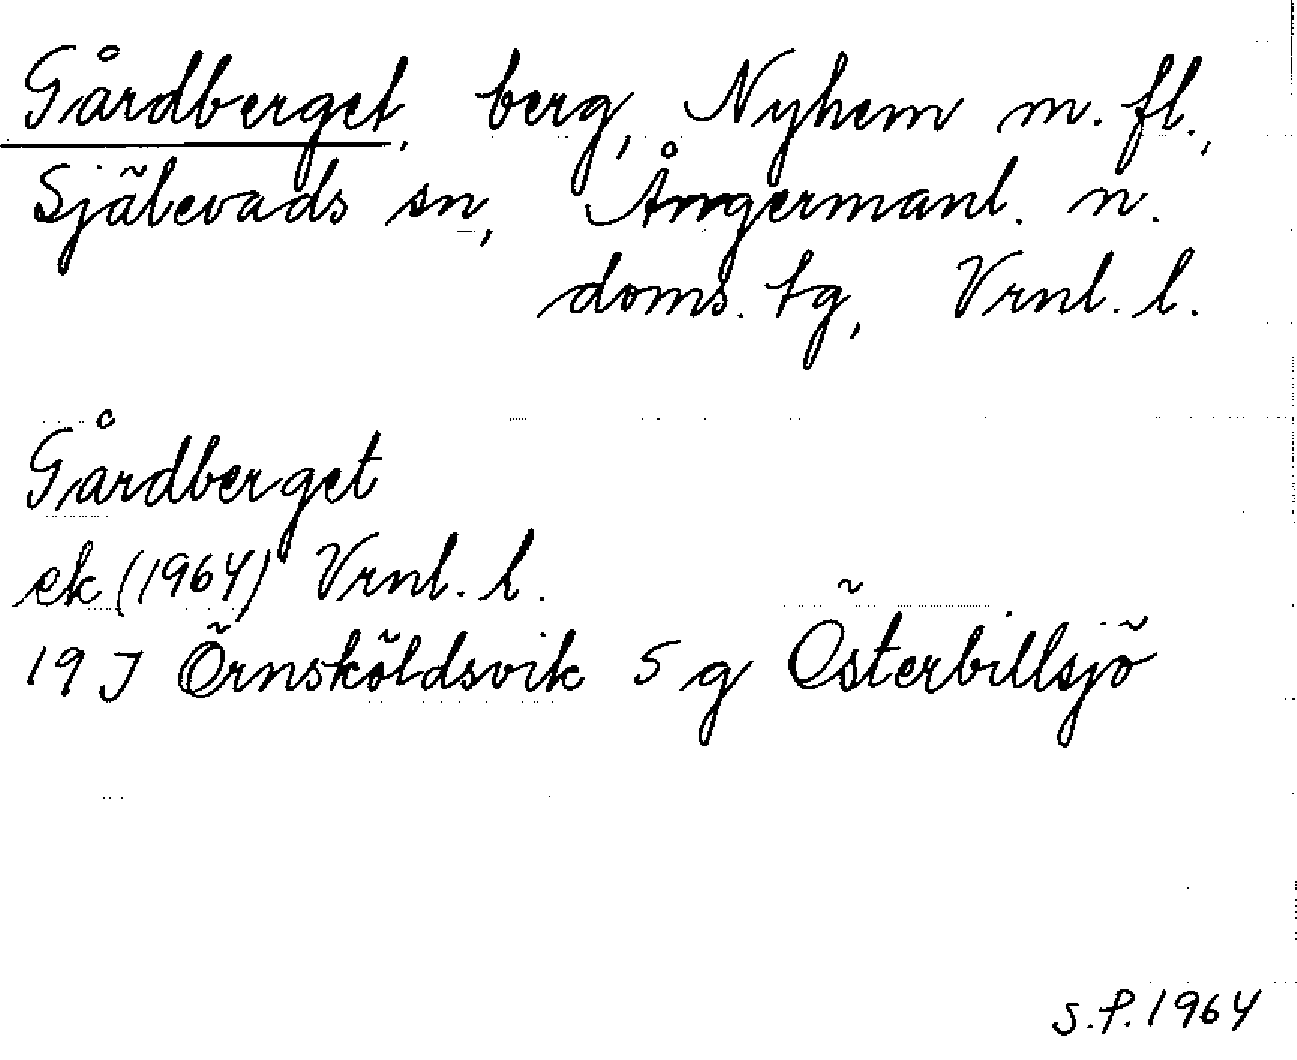 Gårdberget, berg, Nyhem m. fl.,
Själevads sn, Ångermanl. n.
doms. tg, Vrnl. l.
Gårdberget
ek (1964) Vrnl. l.
19 J Örnsköldsvik 5 g Österbillsjö
S.P. 1964